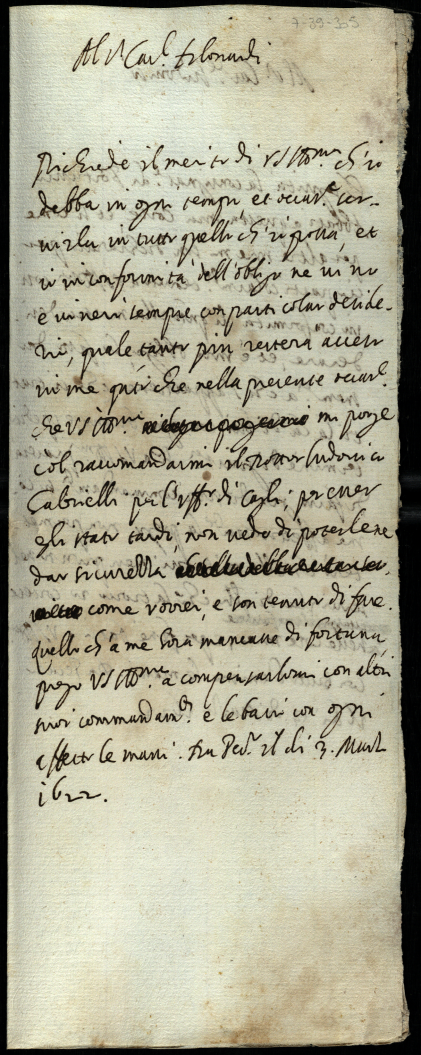 7-39-105
Al S.r Car.l Filonardi
Richiede il merito di VS Ill.ma ch'io
debba in ogni tempo, et occar.e ser-
virla in tutto quello ch'io possa, et
io in conformità dell'obligo ne vivo
e viverò sempre con particolar deside-
rio, quale tanto più resterà acceso
in me q.to che nella presente occar.e
che VS Ill.ma mi porge
col raccomandarmi il Dottor Ludovico
Gabrielli per l'uff.o di Cagli; per esser
egli stato tardi, non vedo di poterlene
dar sicurezza
come vorrei, e son tenuto di fare.
quello ch'a me sarà mancato di fortuna,
prego VS Ill.ma a compensarlomi con altri
suoi commandam.ti e le bacio con ogni
affetto le mani. Da Pes.o il di 3. Marzo
1622.